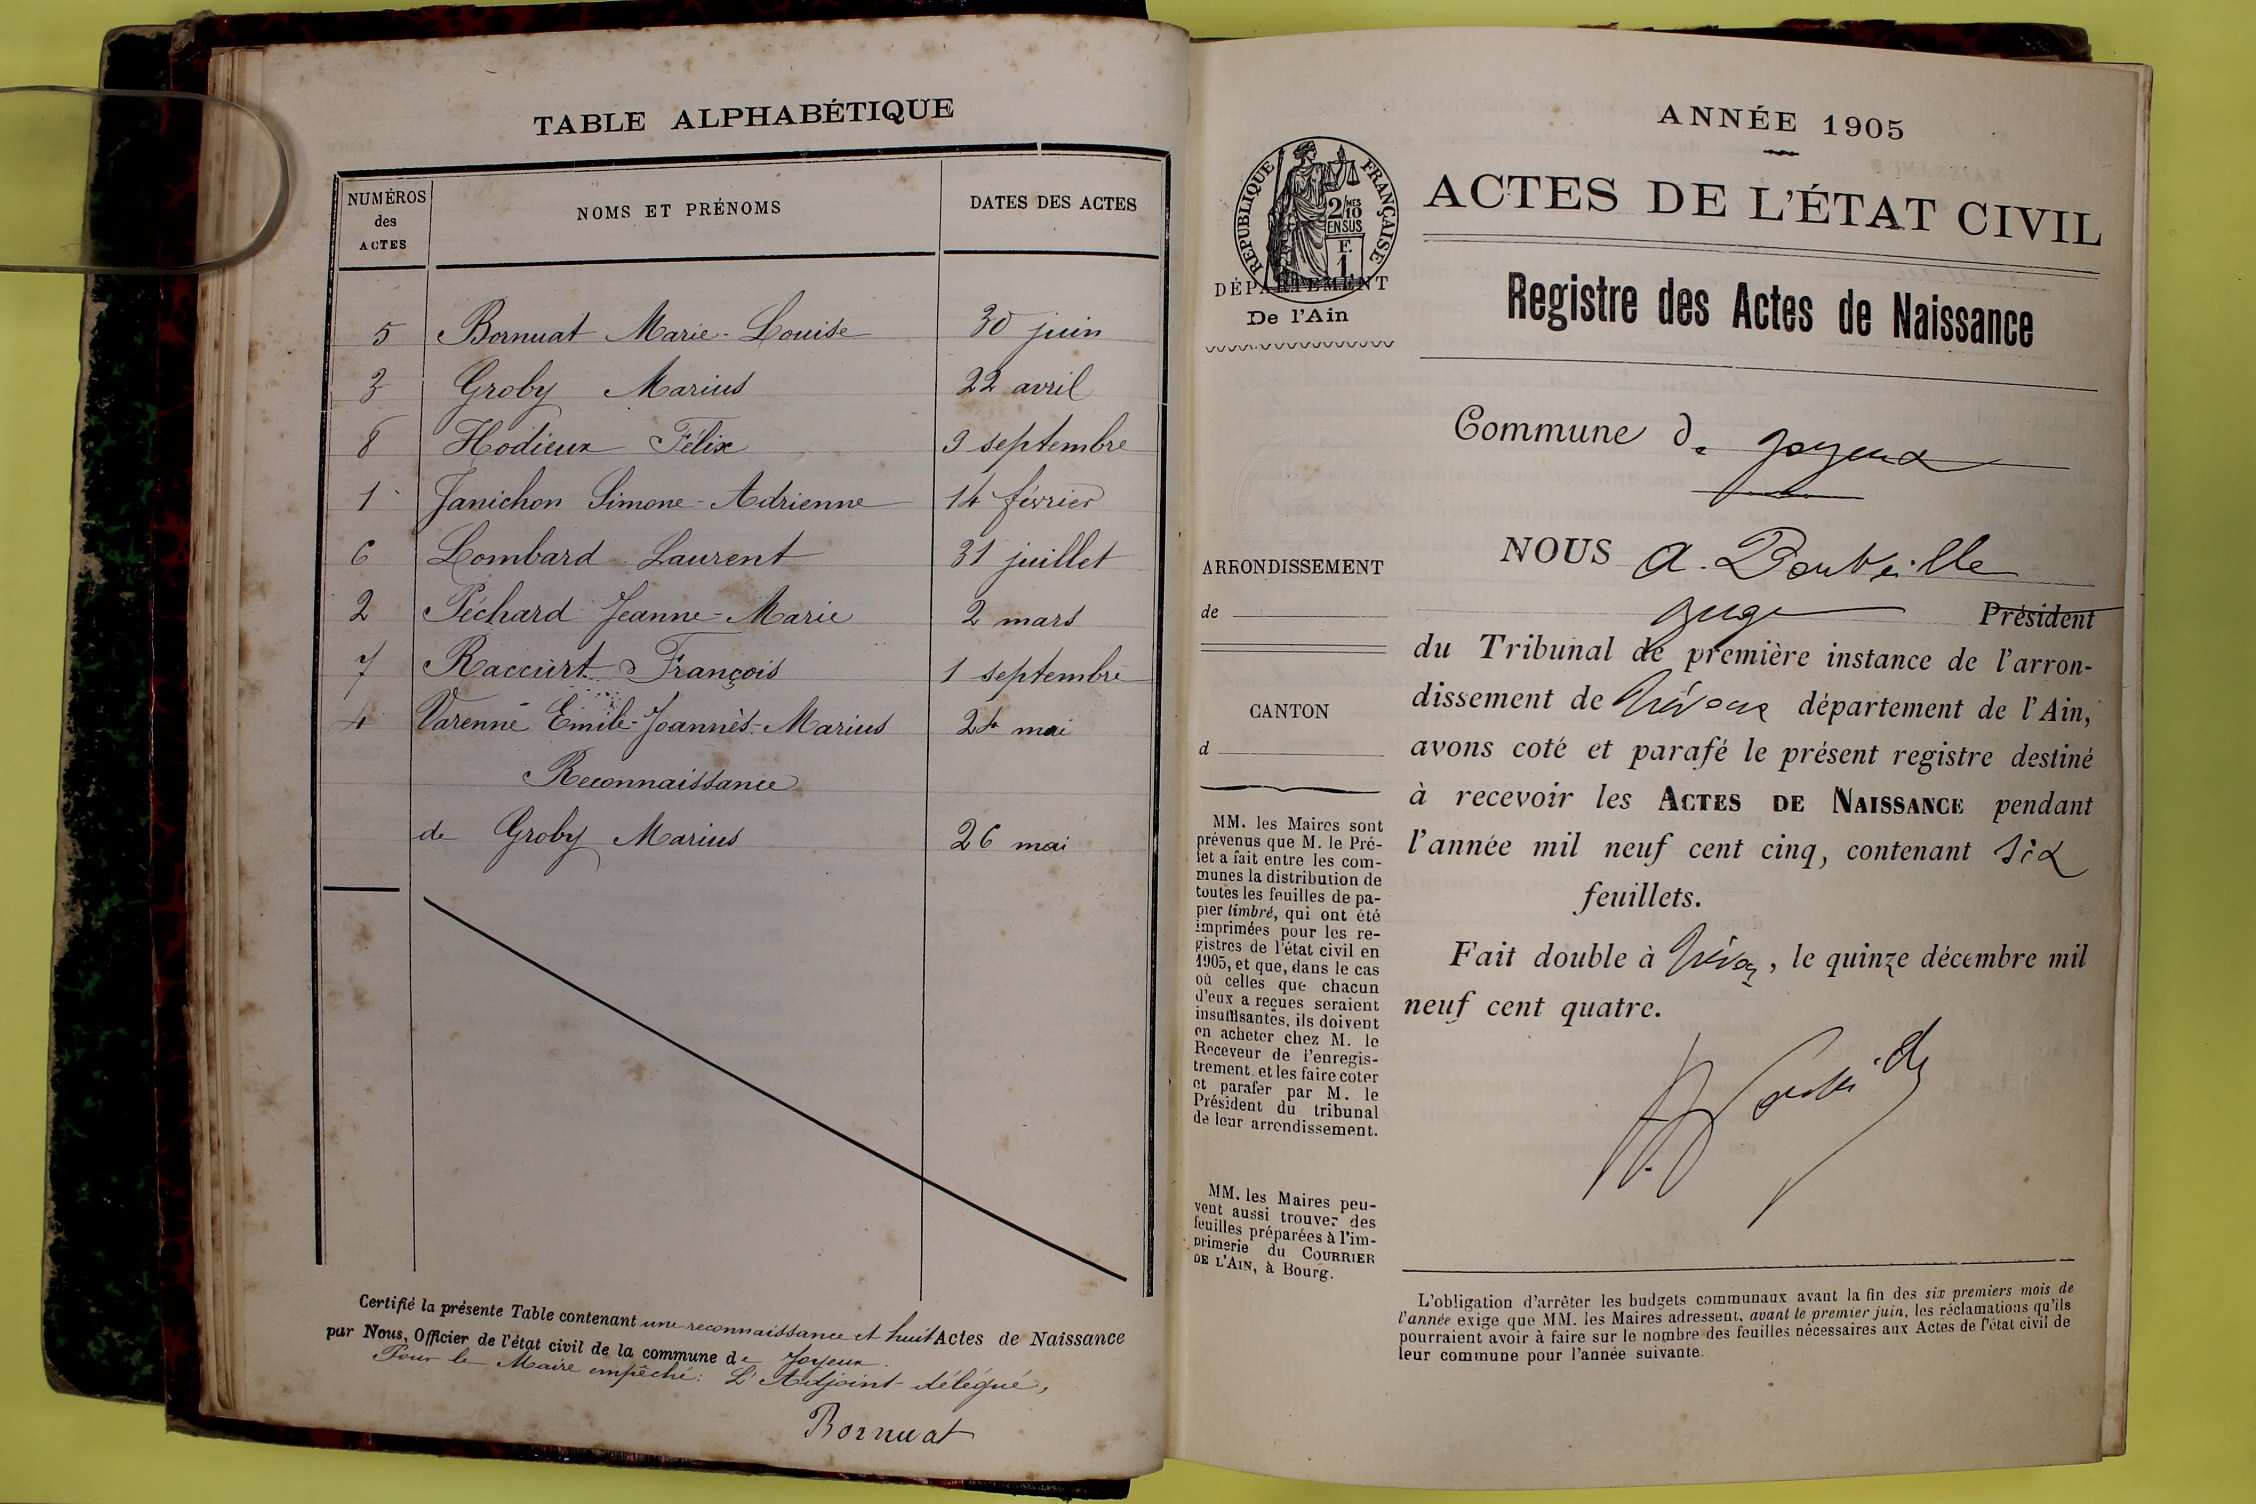 TABLE ALPHABÉTIQUE
NUMÉROS des ACTES NOMS ET PRÉNOMS DATES DES ACTES
5 Bornuat Marie-Louise 30 juin
3 Groby Marius 22 avril
8 Hodieux Félix 9 septembre
1 Janichon Simone-Adrienne 14 février
6 Lombard Laurent 31 juillet
2 Péchard Jeanne-Marie 2 mars
7 Raccurt François 1 septembre
4 Varenne Emile-Joannès-Marius 24 mai
Reconnaissance
de Groby Marius 26 mai
Certifié la présente Table contenant une reconnaissance et huit Actes de Naissance
par Nous, Officier de l'état civil de la commune de Joyeux.
Pour le Maire empêché: L'Adjoint-délégué,
Bornuat
ANNÉE 1905
ACTES DE L'ÉTAT CIVIL
RÉPUBLIQUE FRANÇAISE
2/10MES
EN SUS
F.
1
DÉPARTEMENT
De l'Ain
Registre des Actes de Naissance
Commune de Joyeux
NOUS A.
juge Président
du Tribunal de première instance de l'arron-
dissement de Trévoux département de l'Ain,
avons coté et parafé le présent registre destiné
à recevoir les ACTES DE NAISSANCE pendant
l'année mil neuf cent cinq, contenant six
feuillets.
Fait double à Trévoux, le quinze décembre mil
neuf cent quatre.
ARRONDISSEMENT
de
CANTON
d
MM. les Maires sont
prévenus que M. le Pré-
fet a fait entre les com-
munes la distribution de
toutes les feuilles de pa-
pier timbré, qui ont été
imprimées pour les re-
gistres de l'état civil en
1905, et que, dans le cas
où celles que chacun
d'eux a reçues seraient
insuffisantes, ils doivent
en acheter chez M. le
Receveur de l'enregis-
trement et les faire coter
et parafer par M. le
Président du tribunal
de leur arrondissement.
MM. les Maires peu-
vent aussi trouver des
feuilles préparées à l'im-
primerie du COURRIER
DE L'AIN, à Bourg.
L'obligation d'arrêter les budgets communaux avant la fin des six premiers mois de
l'année exige que MM. les Maires adressent, avant le premier juin, les réclamations qu'ils
pourraient avoir à faire sur le nombre des feuilles nécessaires aux Actes de l'état civil de
leur commune pour l'année suivante.